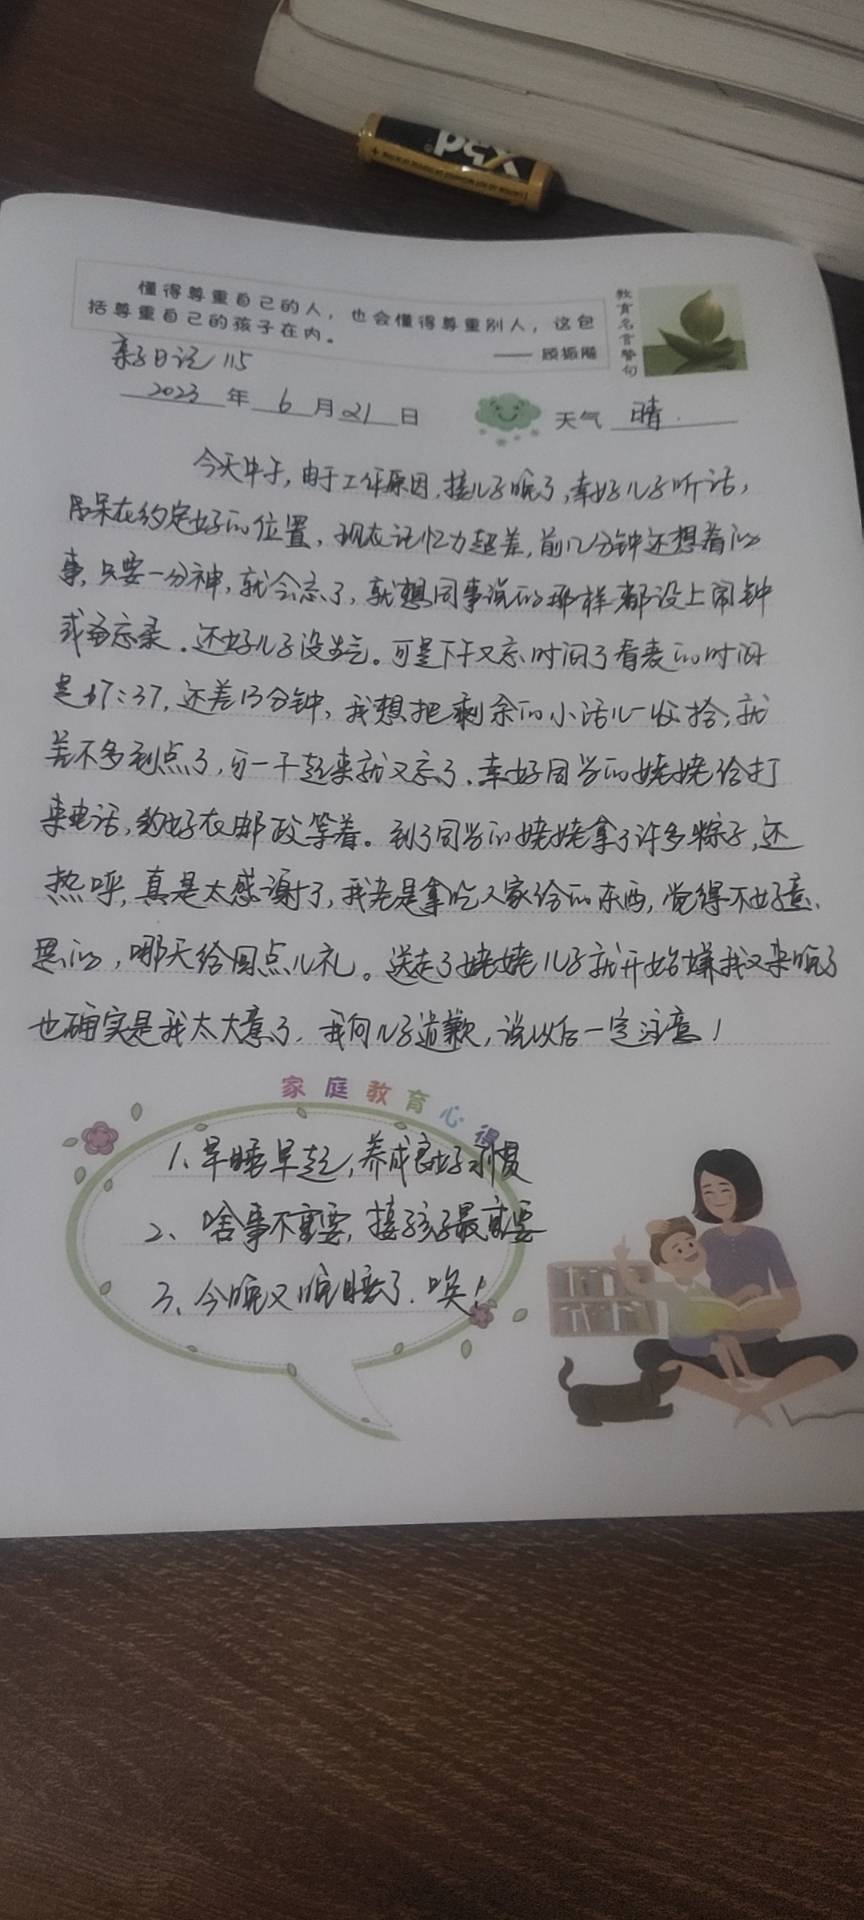 懂得尊重自己的人，也会懂得尊重别人，这包
括尊重自己的孩子在内。
—— 顾振飚
教育名言警句
亲子日记 115
2023 年 6 月 21 日 天气 晴.
今天中午，由于工作原因，接儿子晚了，幸好儿子听话，
呆在约定好的位置，现在记忆力超差，前几分钟还想着的
事，只要一分神，就会忘了，就想同事说的那样都设上闹钟
或备忘录。还好儿子没生气。可是下午又忘时间了看表的时间
是17:37，还差13分钟，我想把剩余的小活儿一收拾，就
差不多到点了，可一干起来就又忘了，幸好同学的姥姥给打
来电话，约好在邮政等着。到了同学的姥姥拿了许多粽子，还
热呼，真是太感谢了，我老是拿吃人家给的东西，觉得不好意
思的，哪天给回点儿礼。送走了姥姥儿子就开始嫌我又来晚了
也确实是我太大意了，我向儿子道歉，说以后一定注意！
家庭教育心得
1、早睡早起，养成良好习惯
2、啥事不重要，接孩子最重要
3、今晚又晚睡了.唉！